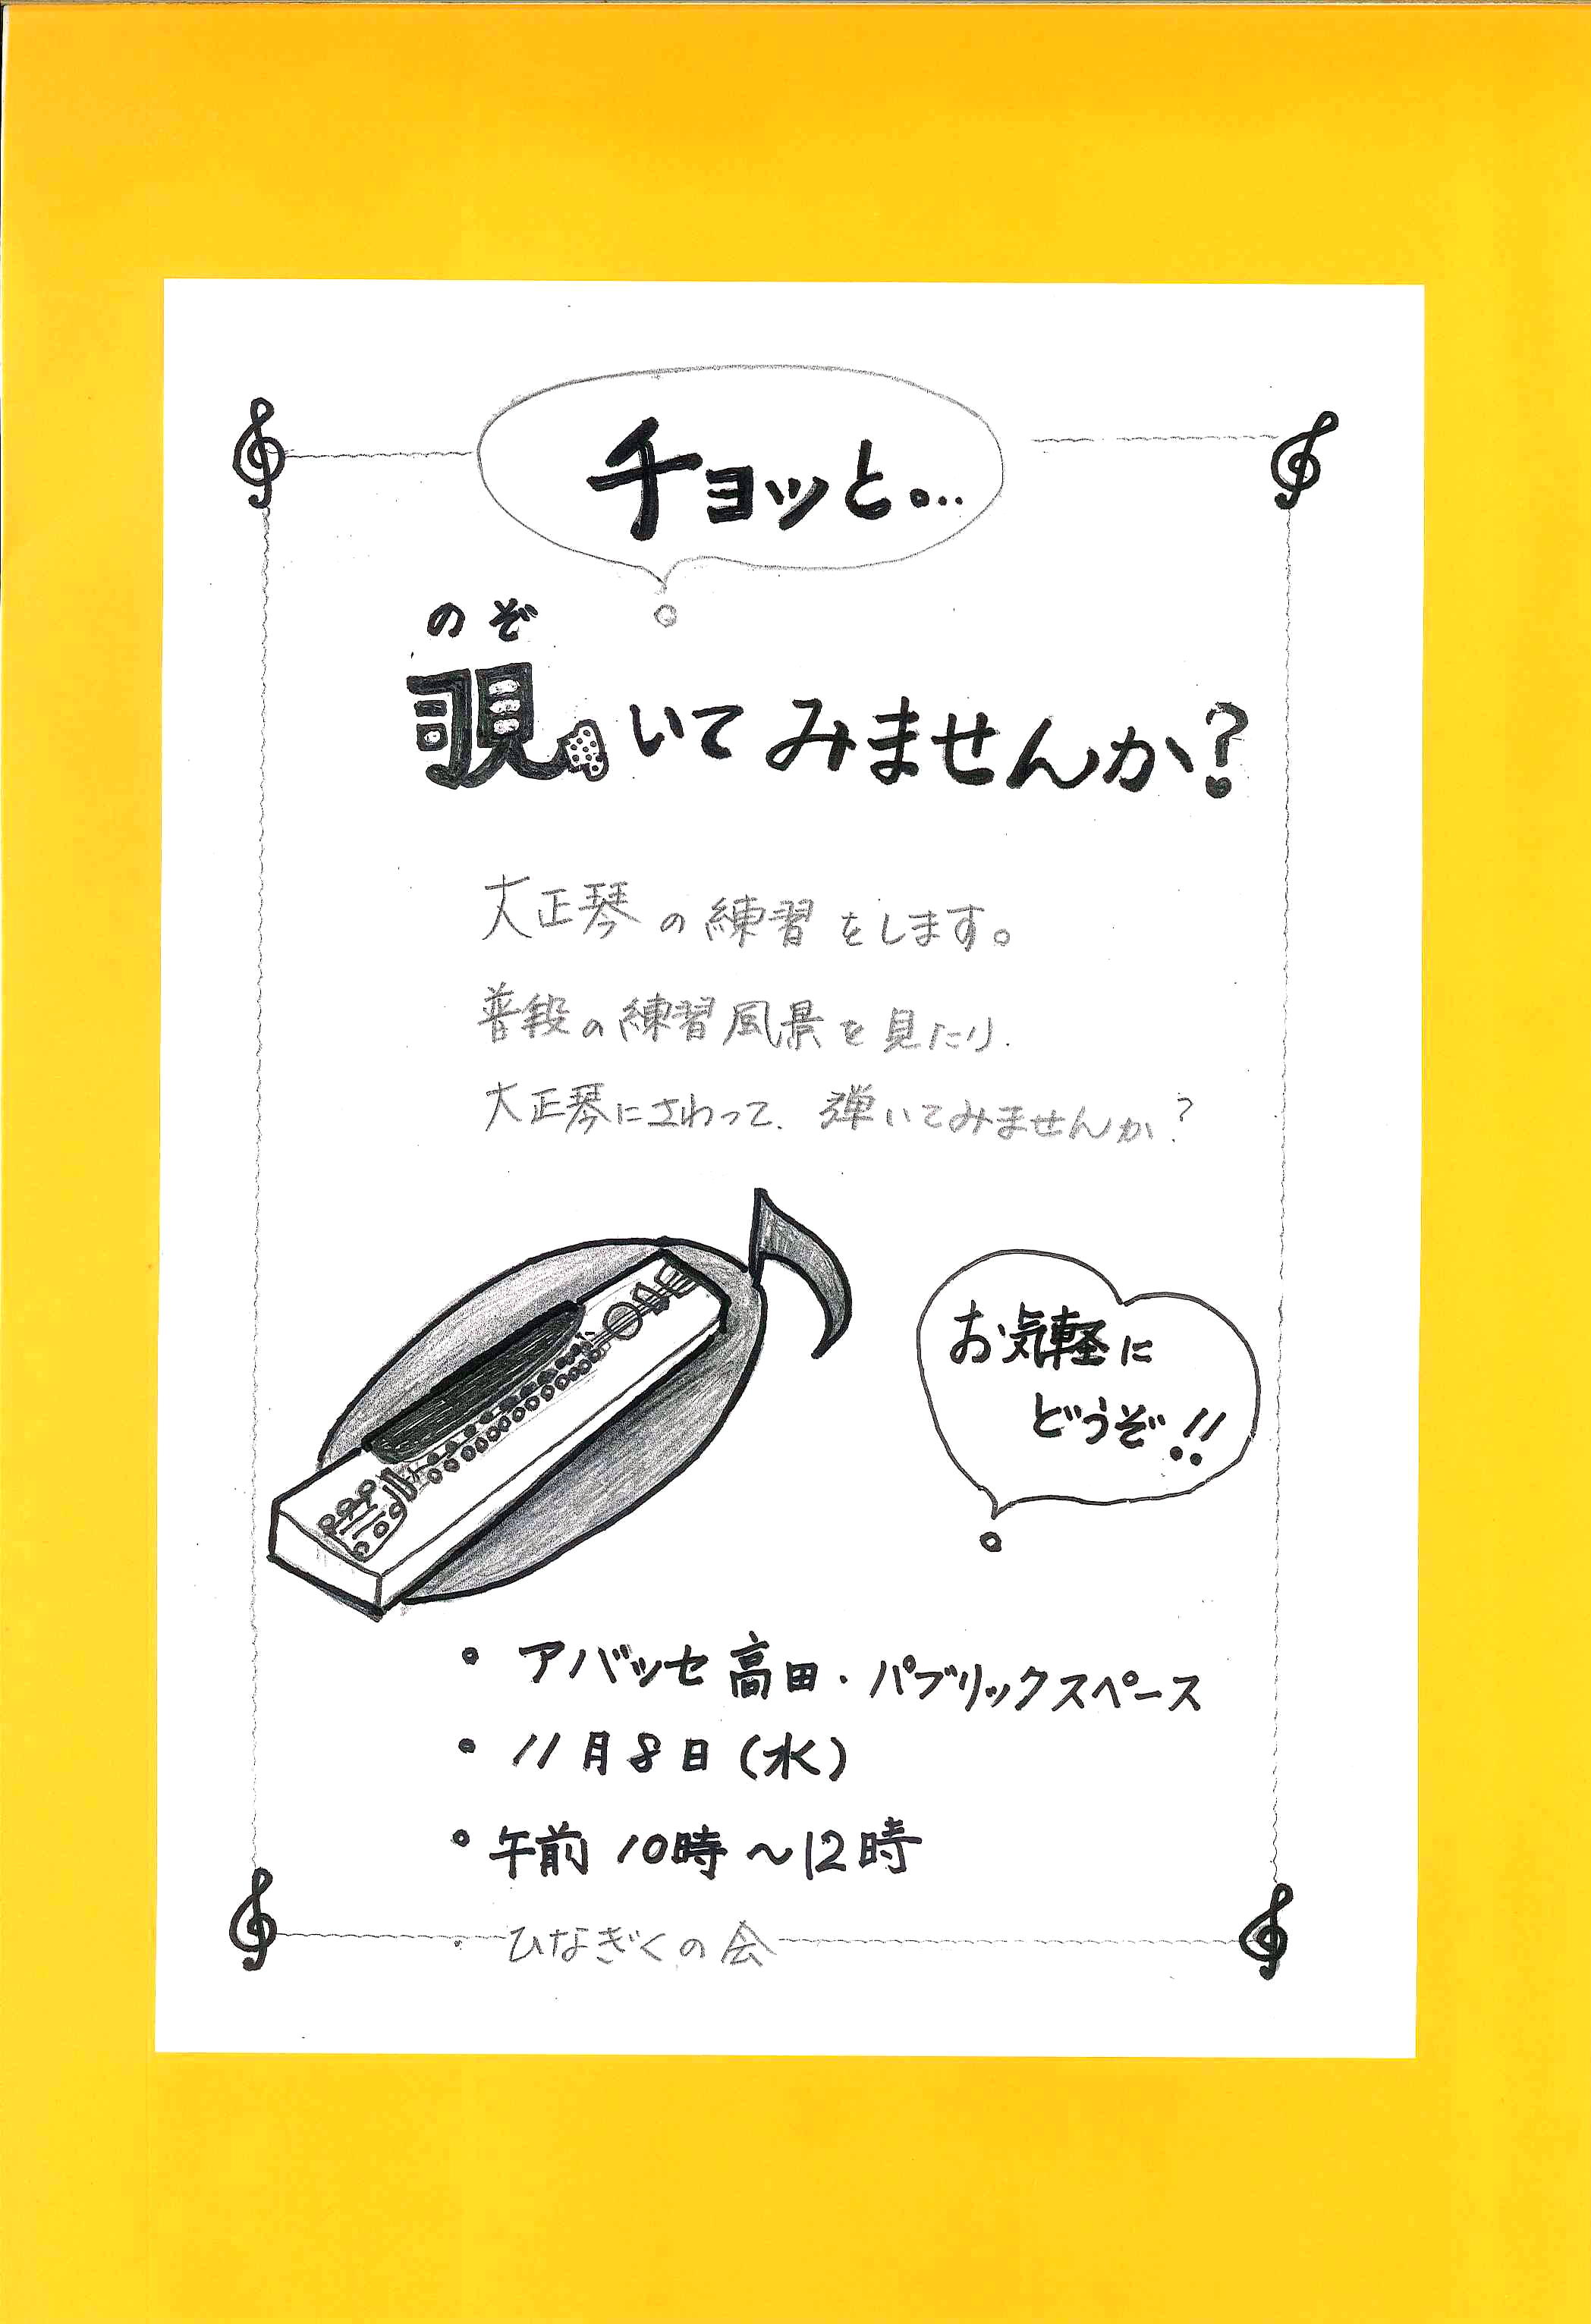 チョッと。…
のぞ
覗いてみませんか?
大正琴の練習をします。
普段の練習風景を見たり、
大正琴にさわって、弾いてみませんか?
お気軽に
どうぞ!!
• アバッセ高田・パブリックスペース
• 11月8日(水)
• 午前10時〜12時
ひなぎくの会